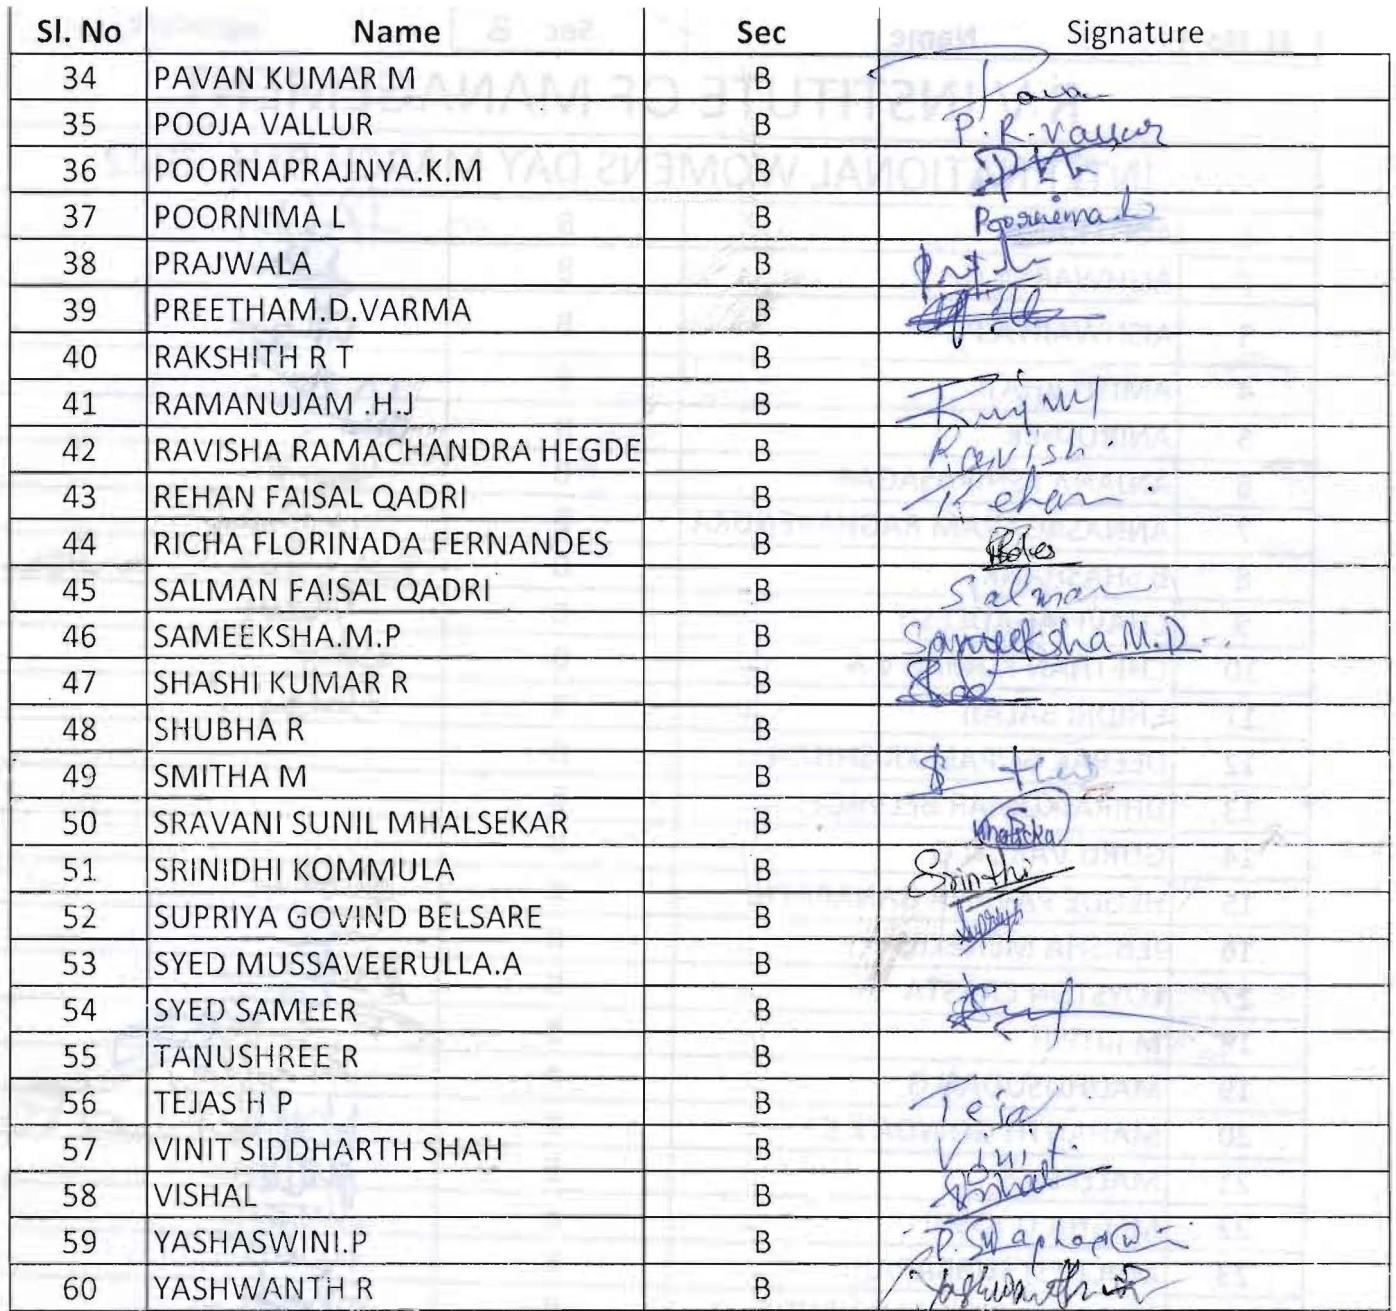 Sl. No Name Sec Signature
34 PAVAN KUMAR M B Pavan
35 POOJA VALLUR B P.R.Vallur
36 POORNAPRAJNYA.K.M B
37 POORNIMA L B Poornima.L
38 PRAJWALA B
39 PREETHAM.D.VARMA B
40 RAKSHITH R T B
41 RAMANUJAM .H.J B
42 RAVISHA RAMACHANDRA HEGDE B Ravish.
43 REHAN FAISAL QADRI B Rehan
44 RICHA FLORINADA FERNANDES B
45 SALMAN FAISAL QADRI B Salman
46 SAMEEKSHA.M.P B Sameeksha M.P
47 SHASHI KUMAR R B
48 SHUBHA R B
49 SMITHA M B
50 SRAVANI SUNIL MHALSEKAR B
51 SRINIDHI KOMMULA B Srinthi
52 SUPRIYA GOVIND BELSARE B Supriya
53 SYED MUSSAVEERULLA.A B
54 SYED SAMEER B
55 TANUSHREE R B
56 TEJAS H P B Teja
57 VINIT SIDDHARTH SHAH B Vinit.
58 VISHAL B Vishal
59 YASHASWINI.P B
60 YASHWANTH R B Yashwanth R